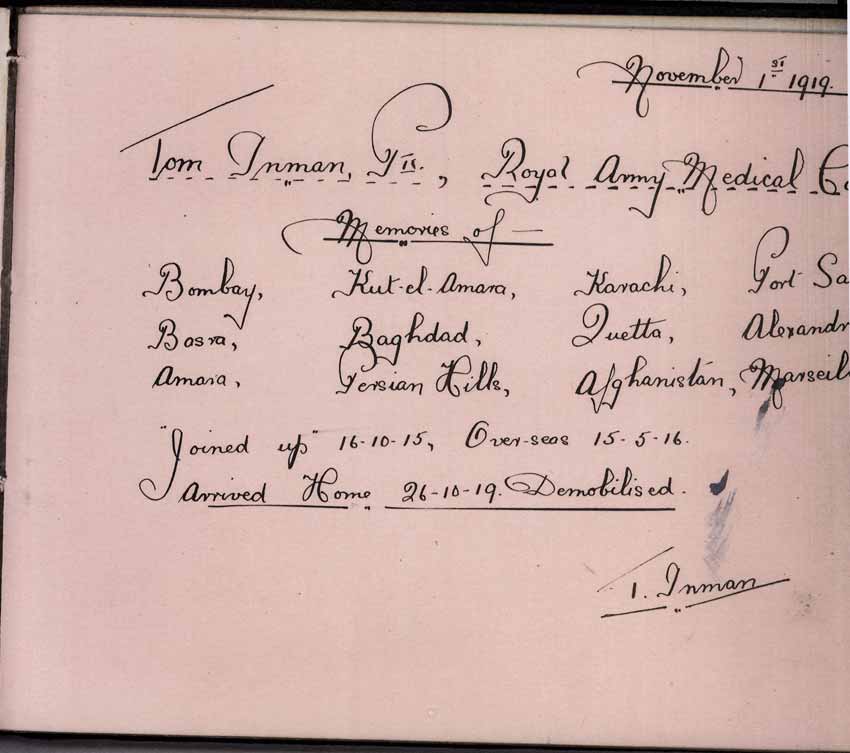 November 1st 1919.
Tom Inman, Pte., Royal Army Medical
Memories of —
Bombay, Kut-el-Amara, Karachi, Port Sa
Basra, Baghdad, Quetta, Alexandr
Amara, Persian Hills, Afghanistan, Marseil
"Joined up" 16-10-15, Over-seas 15-5-16.
Arrived Home 26-10-19. Demobilised.
T. Inman